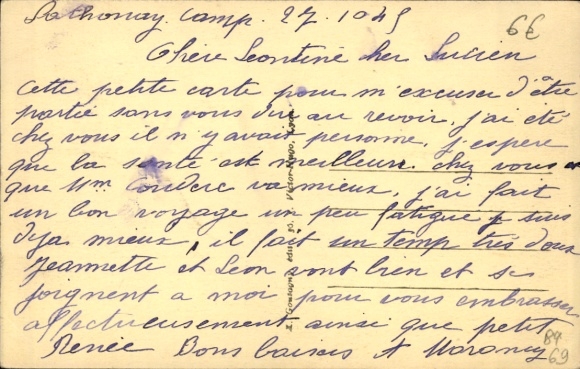 Sathonay Camp. 27. 10 45
6€
Chère Leontine cher Lucien
Cette petite carte pour m'excuser d'être
partie sans vous dir au revoir, j'ai été
chez vous il n'y avait personne, j'espere
que la santé est meilleure chez vous et
que Mm Couderc va mieux, j'ai fait
un bon voyage un peu fatigue je suis
deja mieux, il fait un temp très doux
Jeannette et Leon vont bien et se
joignent a moi pour vous embrasser
affectueusement ainsi que petit
Renée Bons baisers A
69